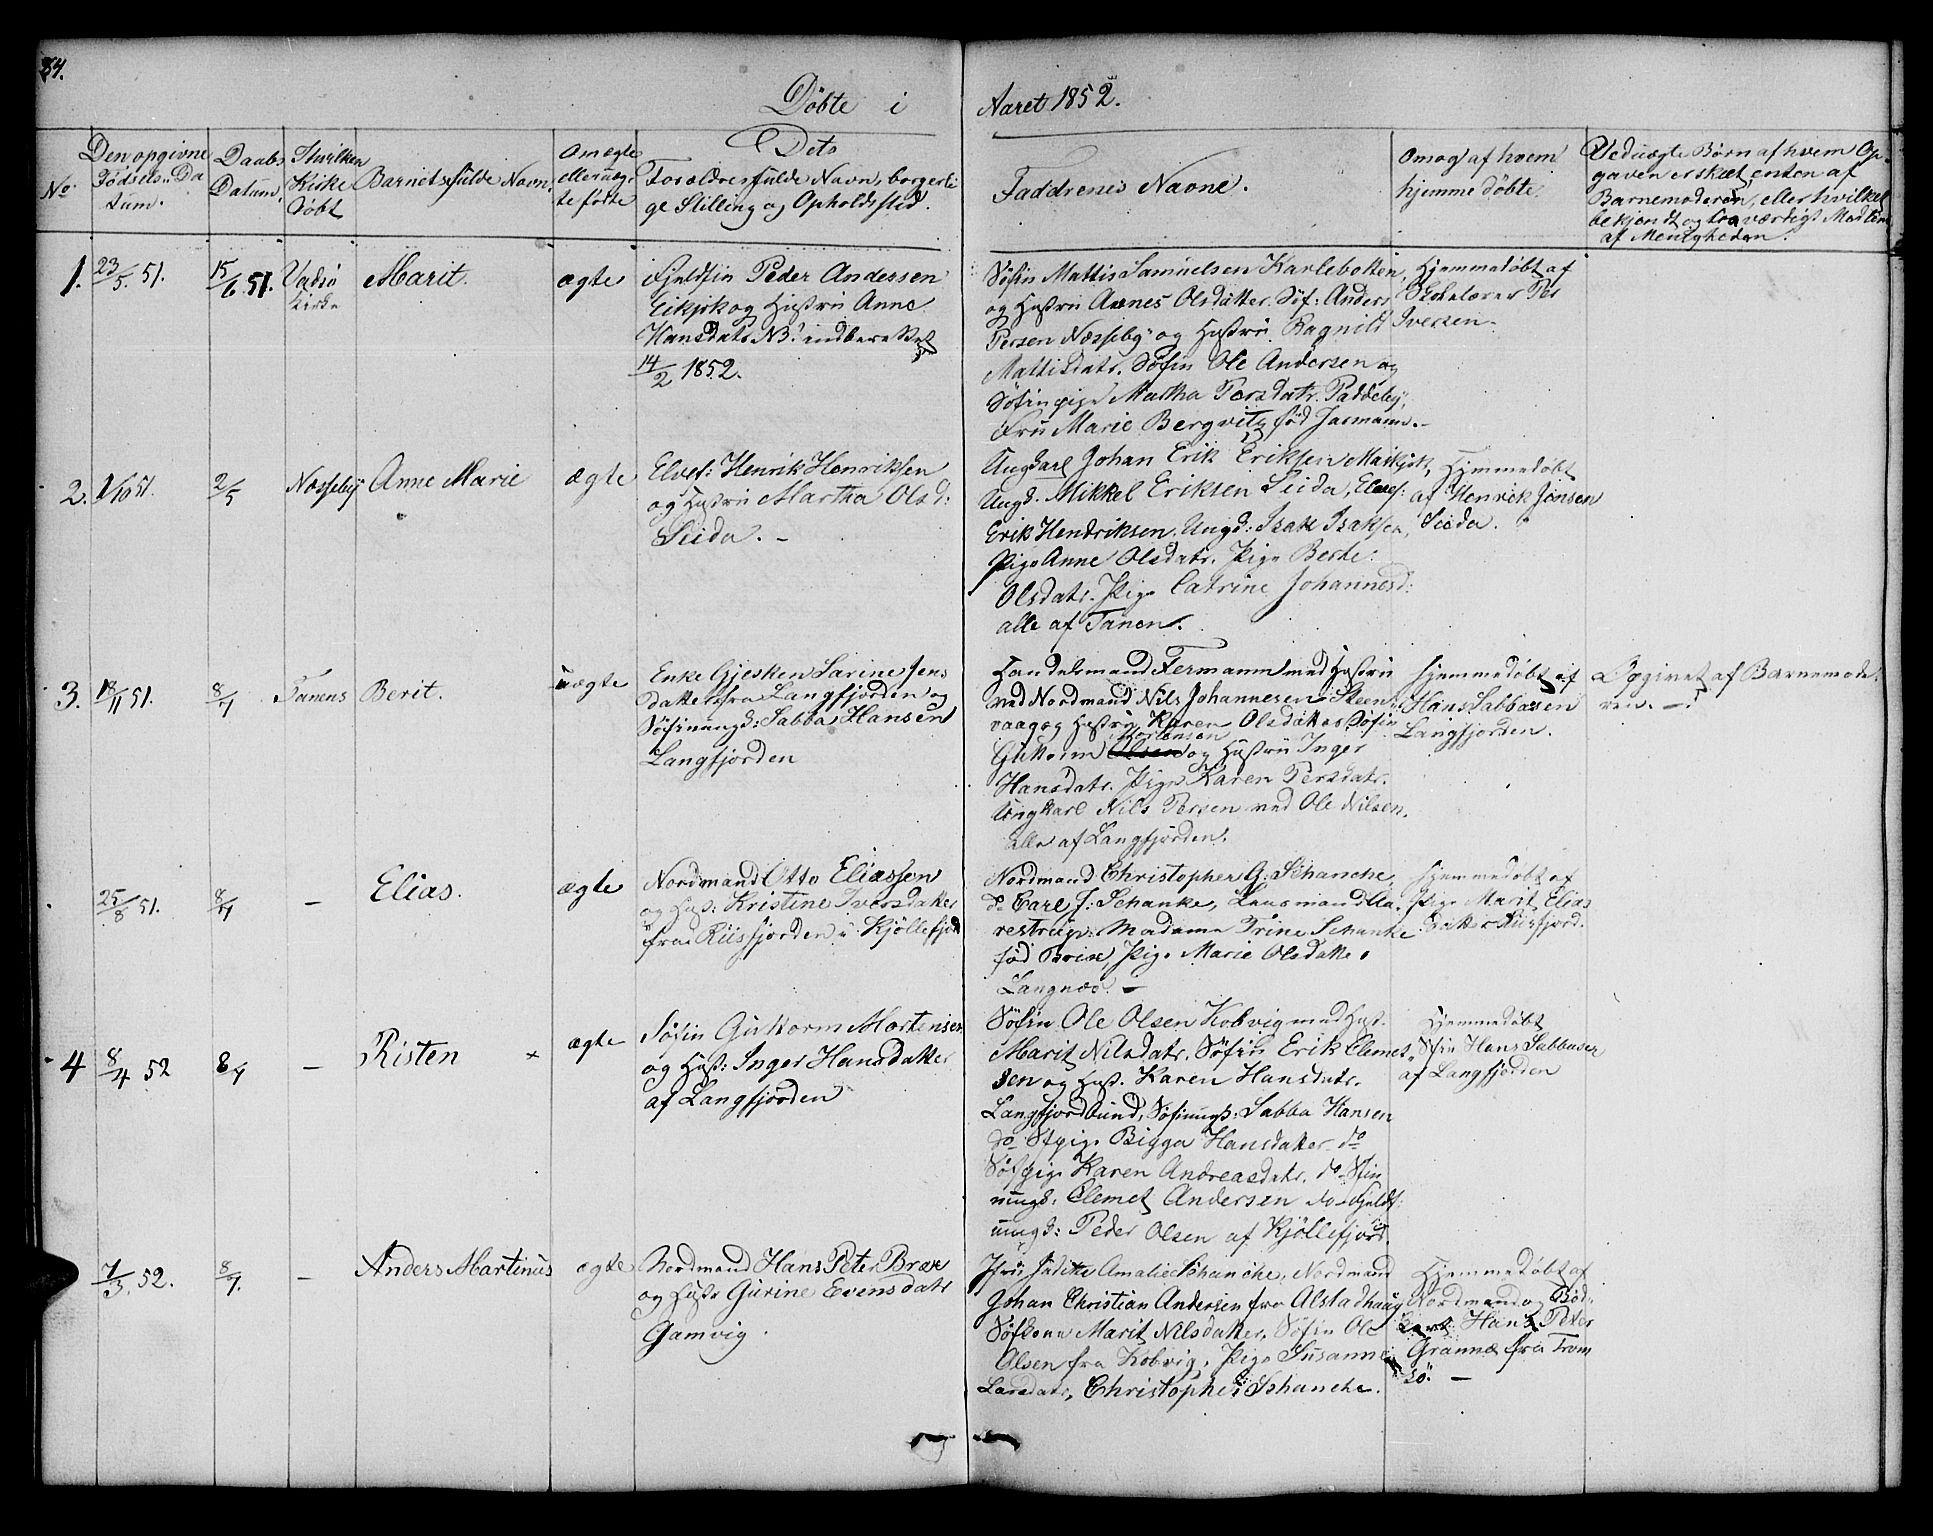 84.
Döbte i Aaret 1852.
No.
Den opgivne Fødsels-Datum.
Daabs Datum.
I hvilken Kirke Döbt
Barnets fulde Navn.
Om ægte eller uægte fødte
Dets Forældres fulde Navn, borgerlige Stilling og Opholdssted.
Faddrenes Navne.
Om og af hvem hjemmedöbte
Ved uægte Børn af hvem Opgaven er skeet, enten af Barnemoderen, eller hvilket bekjendt og troværdigt Medlem af Menigheden.
1. 23/5. 51.
15/6 51.
Vadsö Kirke
Marit.
ægte
Fjeldfin Peder Andersen
og Hustru Anne
Hansdatr NB! indberettet
14/2 1852.
Söfin Mattis Samuelsen Karlebotten
og Hustru Agnes Olsdatter. Söf: Anders
Persen Næsseby og Hustru Ragnild
Mattisdatr. Söfin Ole Andersen og
Söfinpige Martha Persdatr. Paddeby.
Fru Marie Bergvitz fød Jasmann.-
Hjemmedöbt af
Skolelærer Per
Iversen.
2. 1/10 51.
2/5
Næsseby
Anne Marie
ægte
Elvef: Henrik Henriksen
og Hustru Martha Olsd:
Seida. -
Ungkarl Johan Erik Eriksen Maskjok,
Ungd. Mikkel Eriksen Seida, Elvef:
Erik Hendriksen. Ungd: Isak Isaksen,
Pige Anne Olsdatr. Pige Berte
Olsdatr. Pige Catrine Johannesd:
alle af Tanen.
Hjemmedöbt
af Henrik Jonsen
Seida.
3. 18/11 51.
8/7
Tanens
Berit.
uægte
Enke Gjesken Sarine Jens
datter fra Langfjorden og
Söfinungd: Sabba Hansen
Langfjorden
Handelsmand Fermann med Hustru
ved Nordmand Nils Johannesen Steen-
vaag og Hustru Karen Olsdatter Söfin
Mortensen
Guttorm Olsen og Hustru Inger
Hansdatr. Pige Karen Persdatr.
Ungkarl Nils Persen ved Ole Nilsen.
alle af Langfjorden.
Hjemmedöbt af
Hans Sabbasen
Langfjorden.
Opgivet af Barnemode-
ren. -
25/8 51.
8/7
-
Elias.
ægte
Nordmand Otto Eliassen
og Hust: Kristine Iversdatter
fra Riisfjorden i Kjöllefjord
Nordmand Christopher G: Schanche,
do Carl J: Schanke, Lensmand Cla-
restrup. Madame Trine Schanke
fød Brix, Pige Marie Olsdatter
Langnæs. -
Hjemmedöbt af
Pige Marit Elias
datter Riisfjord.
4 8/4 52
8/7
-
Risten ×
ægte
Söfin Guttorm Mortensen
og Hust: Inger Hansdatter
af Langfjorden
Söfin Ole Olsen Kobvig med Hust.
Marit Nilsdatr. Söfin Erik Clemet-
sen og Hust. Karen Hansdatr.
Langfjordbund, Söfinungd: Sabba Hansen
do Sfpige Bigga Hansdatter do
Söfpige Karen Andreasdatr. do Sfin
ungd. Clemet Andersen do Fjeldf:
ungd: Peder Olsen af Kjöllefjord.
Hjemmedöbt
Sfin Hans Sabbasen
af Langfjorden
7/3. 52.
8/7.
-
Anders Martinus
ægte
Nordmand Hans Peter Bræk
og Hustr Gurine Evensdatr
Gamvig.
Jfru Judithe Amalie Schanche, Nordmand
Johan Christian Andersen fra Alstadhaug
Söfkone Marit Nilsdatter, Söfin Ole
Olsen fra Kobvig, Pige Susanne
Larsdatr, Christopher Schanche.
Hjemmedöbt af
Nordmand og Böd-
Hans Peter
Grannæs fra Trom
sö. -